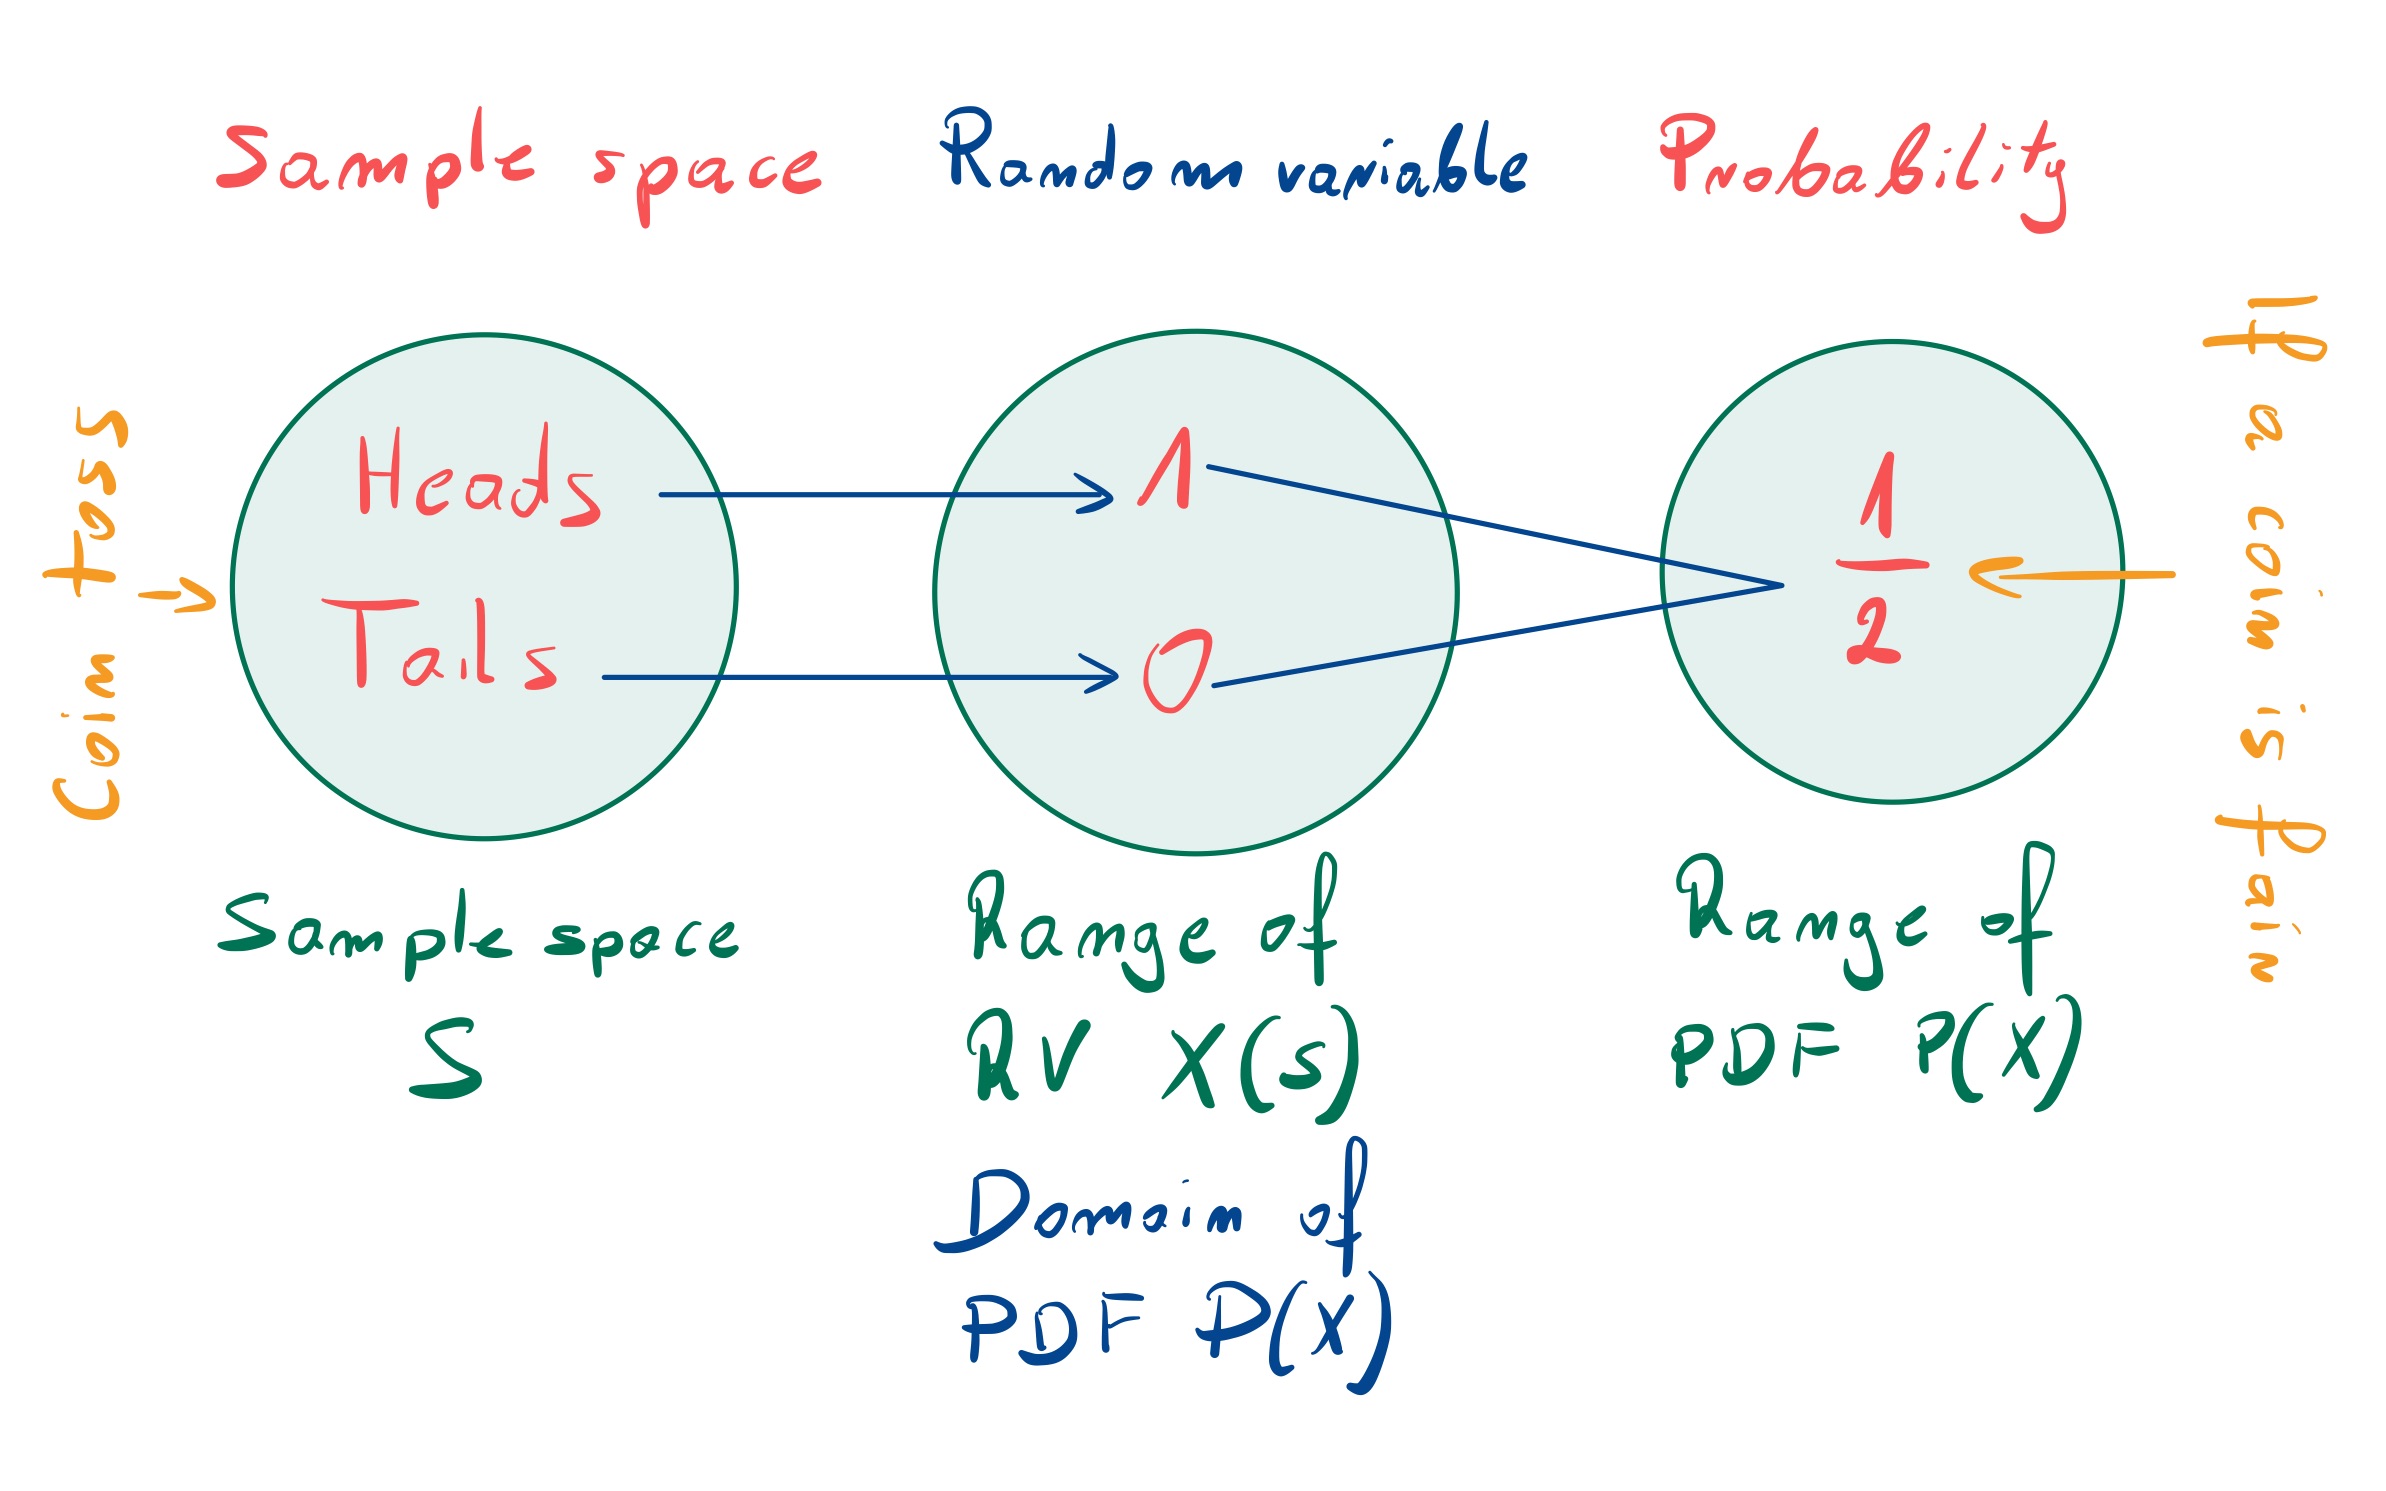 Sample space
Random variable
Probability
Coin toss
Heads
Tails
1
0
1
2
If a coin is fair
Sample space
S
Range of
RV X(s)
Domain of
PDF P(X)
Range of
PDF P(X)